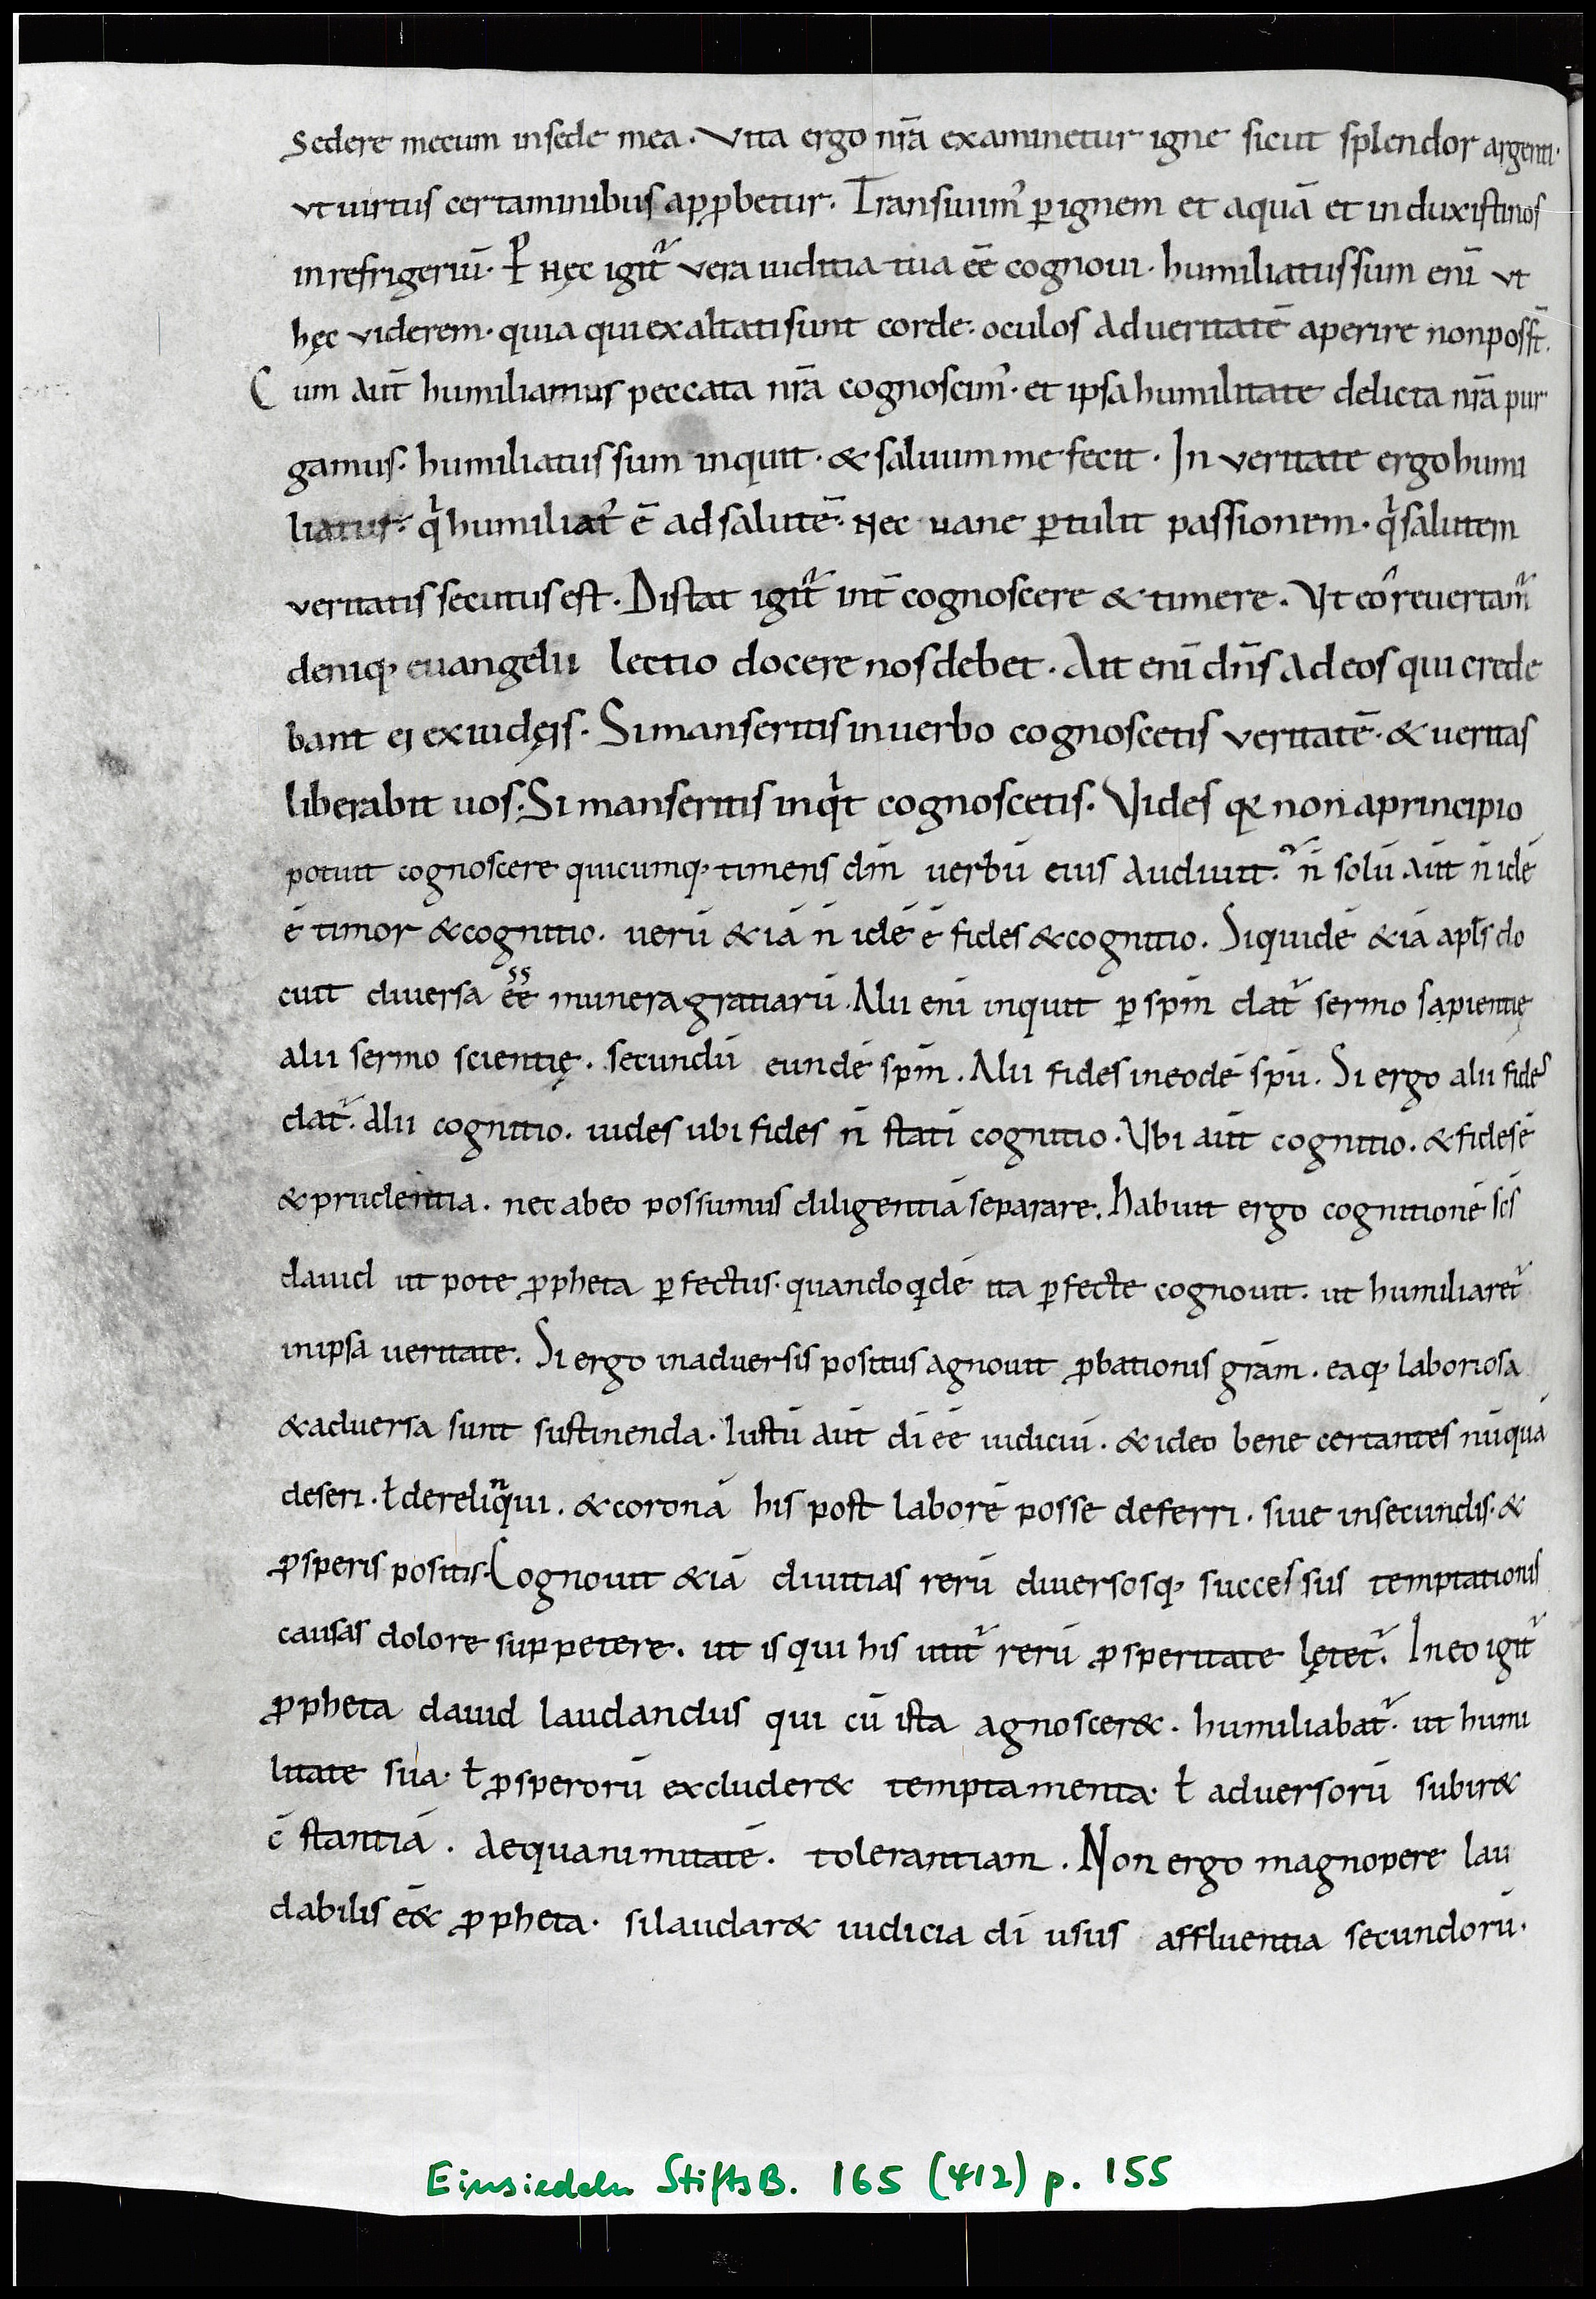 sedere mecum insede mea. Vita ergo nr̄a examinetur igne sicut splendor argenti.
vt uirtus certaminibus apꝓbetur. Transiuim᾽ ꝑignem et aquā et induxistinos
inrefrigeriū. Nęc igit᷑ vera iuditia tua eē cognoui. humiliatussum enī vt
hęc viderem. quia quiexaltatisunt corde. oculos aduertatē aperire nonposst̄.
Cum aut̄ humiliamus peccata nr̄a cognoscim᾽. et ipsahumilitate delicta nr̄a pur
gamus. humiliatus sum inquit. & saluum me fecit. In veritate ergohumi
liatus. qͥ humiliat᾽ ē adsalutē. Nec uane ꝑtulit passionem. qͥ salutem
veritatis secutus est. Distat igit᷑ int̄ cognoscere & timere. Vt eōreuertam᷑
deniqꝫ euangelii lectio docere nosdebet. Ait enī dn̄s Ad eos qui crede
bant ei exiudęis. Simanseritis inuerbo cognoscetis veritatē. & ueritas
liberabit uos. Si manseritis inqͥt cognoscetis. Vides qꝛ non aprincipio
potuit cognoscere quicumqꝫ timens dm̄ uerbū eius Audiuit. n̄ solū aut̄ n̄ idē
ē timor &cognitio. uerū &iā n̄ idē ē fides &cognitio. Siquidē &iā apl̄s do
cuit diuersa ēē munera gratiarū. Alii enī inquit ꝑ spm̄ dat᷑ sermo sapientię
alii sermo scientię. secundū eundē spm̄. Alii fides ineodē spū. Si ergo alii fides
dat᷑. Alii cognitio. uides ubi fides n̄ statī cognitio. Vbi aut̄ cognitio. & fidesē
&prudentia. nec abeo possumus diligentiā separare. habuit ergo cognitionē sc̄s
dauid ut pote ꝓpheta ꝑfectus. quandoqͥdē ita ꝑfecte cognouit. ut humiliaret᷑
inipsa ueritate. Si ergo inaduersis positus agnouit ꝓbationis grām. eaqꝫ laboriosa
&aduersa sunt sustinenda. Iustū aut̄ dī eē iudiciū. & ideo bene certantes nūquā
deseri. ƚ derelinqui. & coronā his post laborē posse deferri. siue insecundis. &
ꝓsperis positis. Cognouit &iā diuitias rerū diuersosqꝫ successus temptationis
causas dolore suppetere. ut is qui his utit᷑ rerū ꝓsperitate lętet᷑. Ineo igit᷑
ꝓpheta dauid laudandus qui cū ista agnoscer&. humiliabat᷑. ut humi
litate sua. ƚ ꝓsperorū excluder& temptamenta. ƚ aduersorū subir&
c̄stantiā. Aequanimitatē. tolerantiam. Non ergo magnopere lau
dabilis eē& ꝓpheta. silaudar& iudicia dī usus affluentia secundorū.
Einsiedeln StiftsB. 165 (412) p. 155